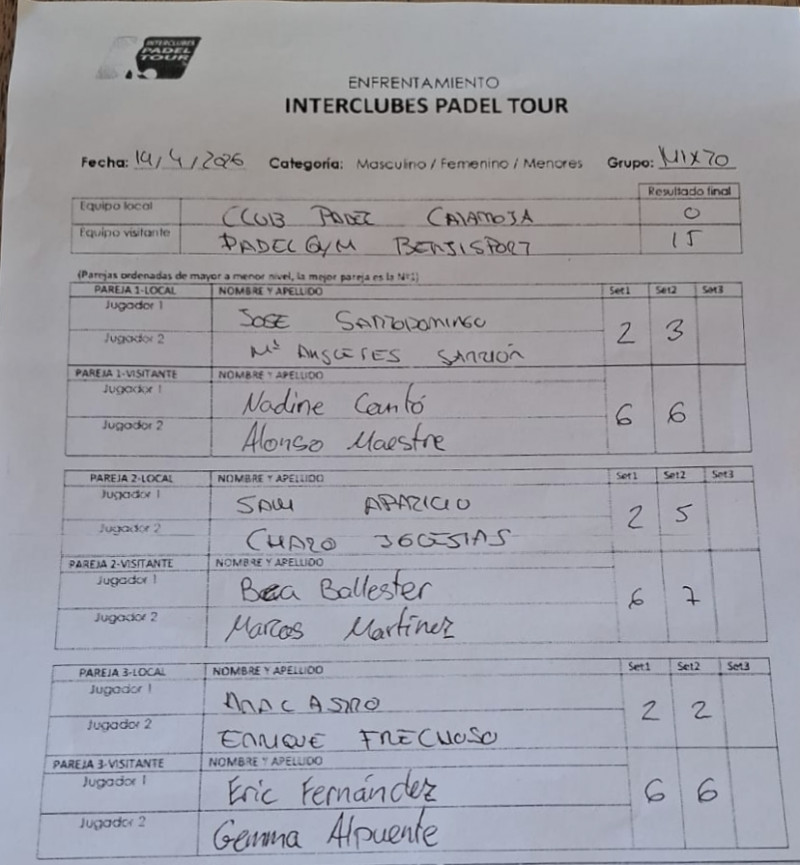 INTERCLUBES
PADEL
TOUR
ENFRENTAMIENTO
INTERCLUBES PADEL TOUR
Fecha: 14/4/2026 Categoría: Masculino / Femenino / Menores Grupo: MIX70
Resultado final
Equipo local CLUB PADEL CALAMOJA 0
Equipo visitante PADEL GYM BENJISPORT 15
(Parejas ordenadas de mayor a menor nivel, la mejor pareja es la Nº1)
PAREJA 1-LOCAL NOMBRE Y APELLIDO Set1 Set2 Set3
Jugador 1 JOSE SANTODOMINGO 2 3
Jugador 2 Mª ANGELES
PAREJA 1-VISITANTE NOMBRE Y APELLIDO
Jugador 1 Nadine Cantó 6 6
Jugador 2 Alonso Maestre
PAREJA 2-LOCAL NOMBRE Y APELLIDO Set1 Set2 Set3
Jugador 1 APARICIO 2 5
Jugador 2 CHARO IGLESIAS
PAREJA 2-VISITANTE NOMBRE Y APELLIDO
Jugador 1 Bea Ballester 6 7
Jugador 2 Marcos Martínez
PAREJA 3-LOCAL NOMBRE Y APELLIDO Set1 Set2 Set3
Jugador 1 ANA CASTRO 2 2
Jugador 2 ENRIQUE FRECHOSO
PAREJA 3-VISITANTE NOMBRE Y APELLIDO
Jugador 1 Eric Fernández 6 6
Jugador 2 Gemma Alpuente